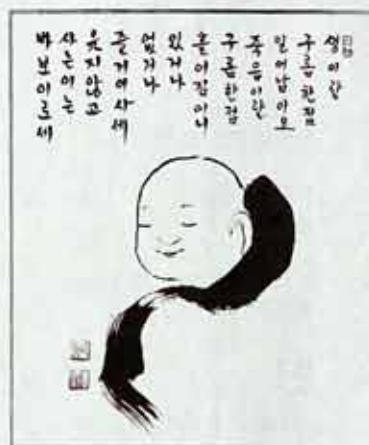 생이란
구름 한점
일어남이오
죽음이란
구름한점
흩어짐이니
있거나
없거나
즐기어사세
웃지않고
사는이는
바보이로세